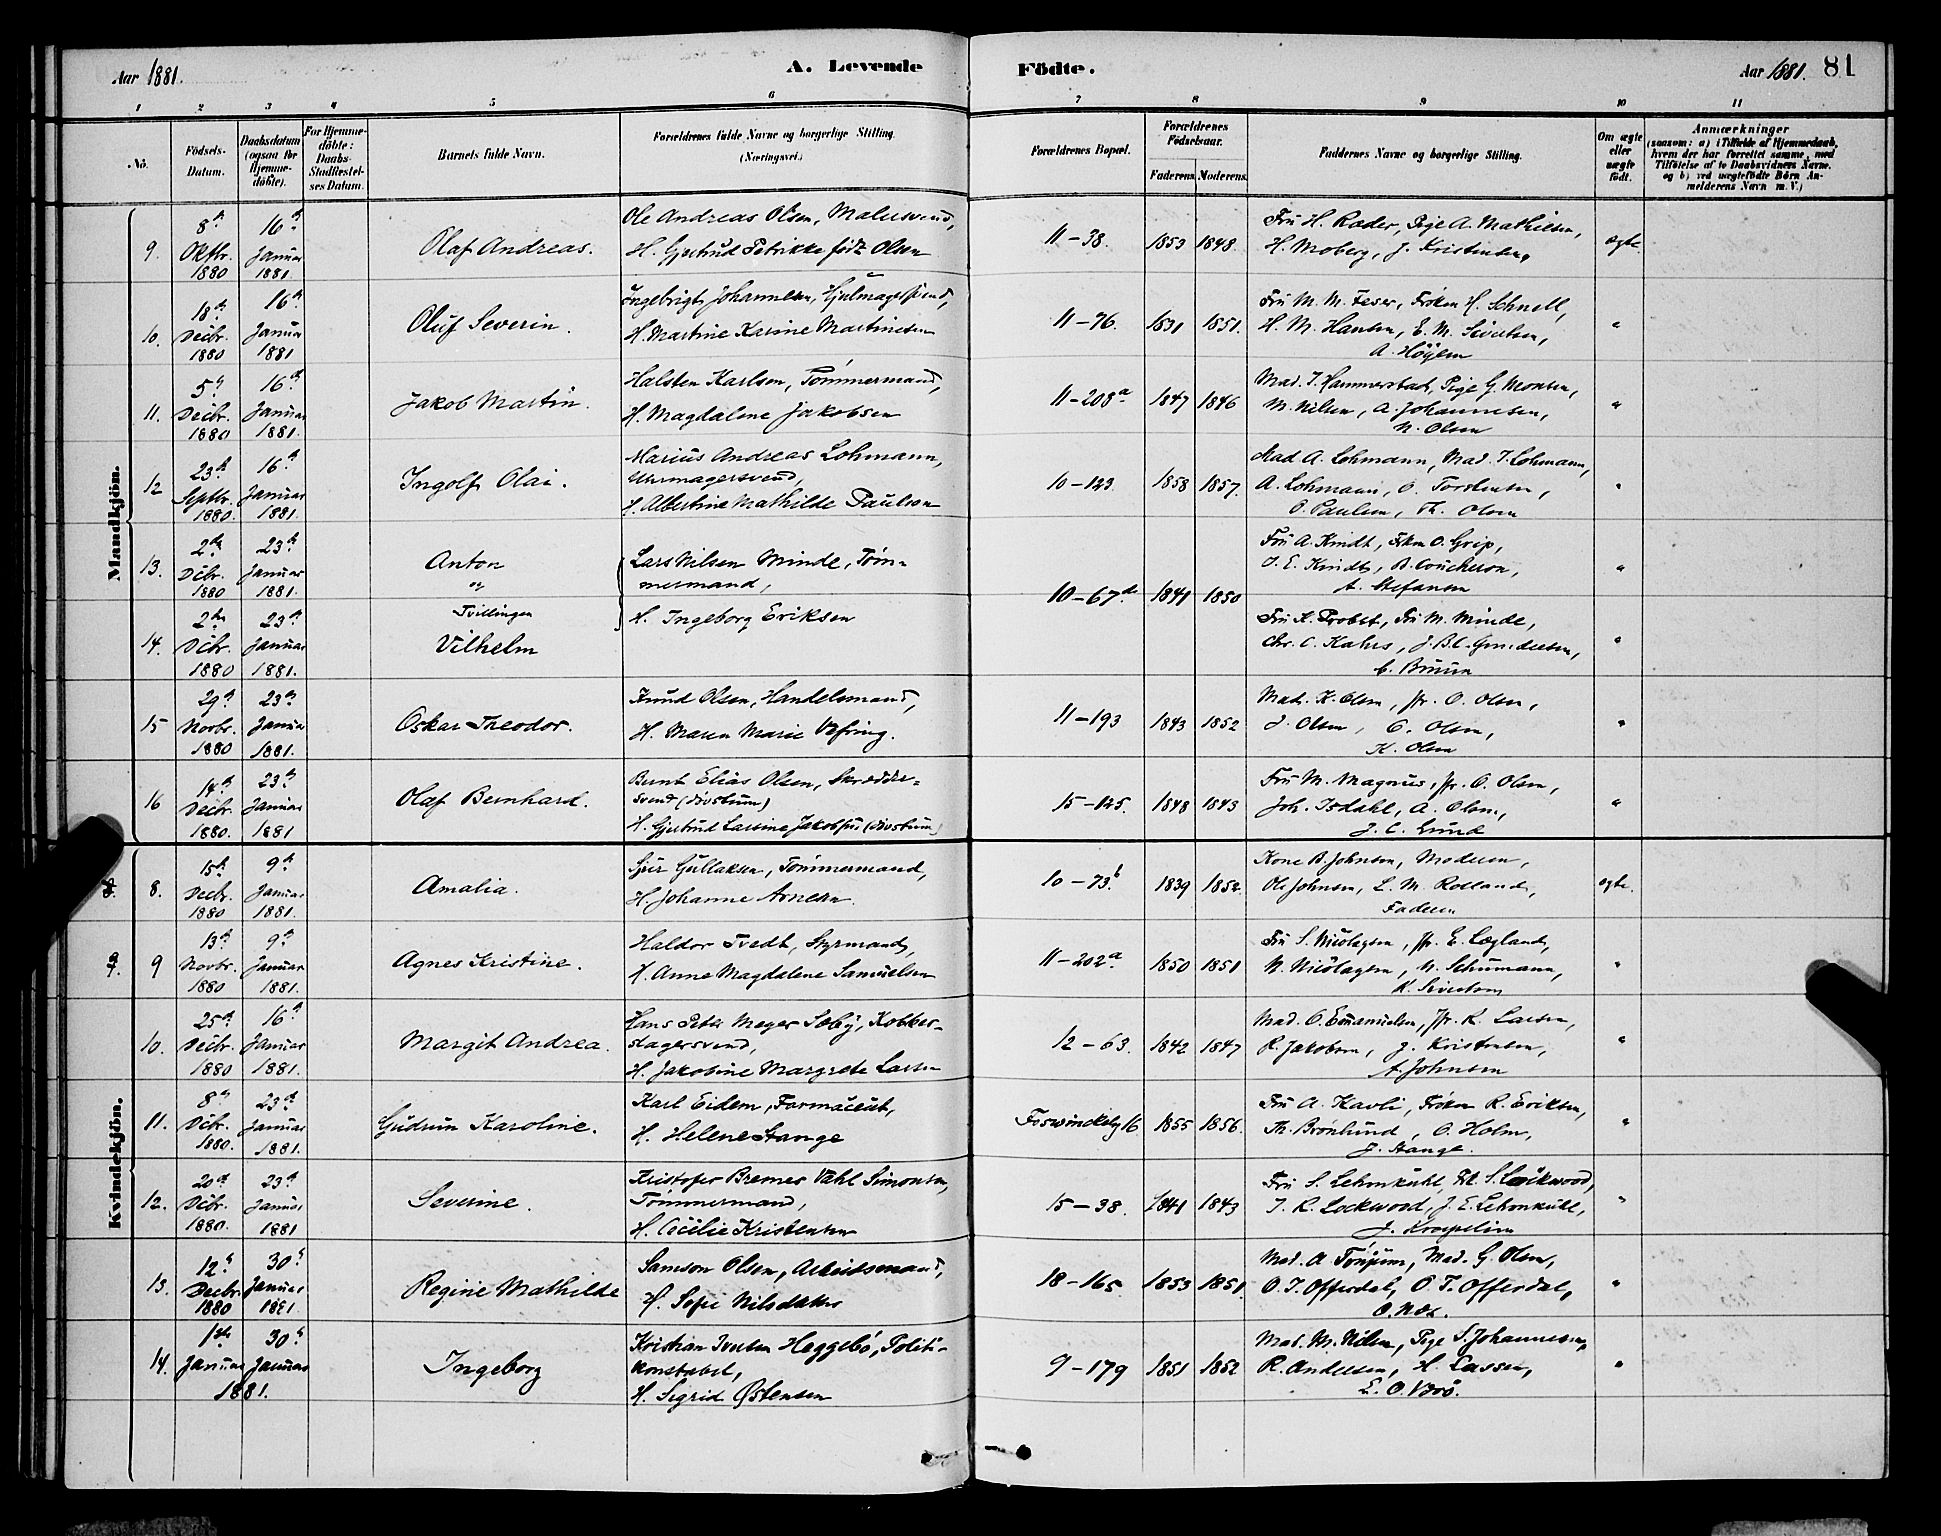 Aar 1881.
A. Levende
Födte.
Aar 1881. 81
1 2 3 4 5 6 7 8 9 10 11
No.
Födsels-Datum.
Daabsdatum (ogsaa for Hjemme-döbte).
For Hjemme-döbte: Daabs-Stadfæstel-ses Datum.
Barnets fulde Navn.
Forældrenes fulde Navne og borgerlige Stilling. (Næringsvei.)
Forældrenes Bopæl.
Forældrenes Födselsaar.
Faderens. Moderens.
Faddernes Navne og borgerlige Stilling.
Om ægte eller uægte födt.
Anmærkninger
(saasom: a) i Tilfælde af Hjemmedaab, hvem der har forrettet samme, med Tilföielse af to Daabsvidners Navne. og b) ved uægtefödte Börn An-melderens Navn m. V.)
Mandkjön.
9. 8de Oktbr. 1880 16de Januar 1881. Olaf Andreas. Ole Andreas Olsen, Malersvend,
H. Gjertrud Petrikke født Olsen
11-38. 1853 1848. Fru H. Ræder, Pige A. Mathiesen,
H. Moberg, J. Kristensen, ægte
10. 18de Decbr. 1880 16de Januar 1881 Oluf Severin. Ingebrigt Johannesen, Hjulmagersvend,
H. Martine Karine Martinesen
11-76. 1831 1851. Fru M. M. Feser, Frøken H. Schnell,
H. M. Hansen, E. M. Sivertsen,
A. Høyem "
11. 5te Decbr. 1880 16de Januar 1881. Jakob Martin. Halsten Karlsen, Tømmermand,
H. Magdalene Jakobsen
11-208a 1847 1846 Mad. J. Hammerstad, Pige G. Monsen,
M. Nilsen, A. Johannesen,
N. Olsen "
12 23de Septbr. 1880. 16de Januar 1881. Ingolf Olai. Marius Andreas Lohmann,
Uhrmagersvend,
H. Albertine Mathilde Paulson
10-123. 1858 1857. Mad. A. Lohmann, Mad. J. Lohmann,
A. Lohmann, O. Torstensen,
O. Paulsen, Th. Olsen "
13. 2den Dcbr. 1880 23de Januar 1881. Anton
og
Tvillinger
Lars Nilsen Minde, Tøm-
mermand,
H. Ingeborg Eriksen
10-67d. 1841 1850 Fru A. Kindt, Frkn O. Grip,
J. E. Kindt, B. Coucheron,
A. Stefansen "
14. 2den Dcbr. 1880 23de Januar 1881. Vilhelm
Fru K. Probst, Fru M. Minde,
Chr. C. Kahrs, J. B. C. Gundersen,
C. Bruun "
15 29de Novbr. 1880 23de Januar 1881. Oskar Theodor. Knud Olsen, Handelsmand,
H. Maren Marie Vefring.
11-193 1843 1852 Mad. K. Olsen, Jfr. O. Olsen,
J. Olsen, C. Olsen,
K. Olsen "
16 14de Decbr. 1880. 23de Januar 1881 Olaf Bernhard. Bernt Elias Olsen, Skrædder-
svend (døvstum)
H. Gjertrud Larsine Jakobsen (døvstum)
15-125. 1848 1843 Fru M. Magnus, Jfr. O. Olsen,
Joh. Isdahl, A. Olsen,
J. C. Lund "
Kvindekjön.
8. 15de Decbr. 1880 9de Januar 1881. Amalia. Sjur Gullaksen, Tømmermand,
H. Johanne Arnesen.
10-73b. 1839 1852. Kone B. Johnsen, Moderen,
Ole Johnsen, L. M. Rolland,
Faderen ægte.
9 13de Novbr. 1880 9de Januar 1881. Agnes Kristine. Haldor Tvedt, Styrmand,
H. Anne Magdalene Samuelsen
11-202a. 1850 1851 Fru S. Nicolaysen, Jfr. E. Lægland,
N. Nicolaysen, M. Schumann,
K. Sivertsen "
10. 25de Decbr. 1880 16de Januar 1881. Margit Andrea. Hans Peter Meyer Søby, Kobber-
slagersvend,
H. Jakobine Margrete Larsen
12-63. 1842 1847 Mad. O. Emanuelsen, Jfr. R. Larsen,
R. Jakobsen, J. Kristensen,
A. Johnsen "
11. 8de Dcbr. 1880. 23de Januar 1881. Gudrun Karoline. Karl Eidem, Farmaceut,
H. Helene Stange
Forswindelsg 16 1855 1856. Fru A. Kavli, Frøken R. Eriksen,
Th. Brønlund, O. Holm,
J. Stange. "
12. 20de Dcbr. 1880. 23de Januar 1881 Severine. Kristofer Bremer Vahl Simonsen,
Tømmermand,
H. Cecilie Kristensen
15-38. 1841 1843 Fru S. Lehmkuhl, Frk. S. Lockwood,
J. R. Lockwood, J. E. Lehmkuhl,
J. Kroepelien "
13. 12te Decbr. 1880 30te Januar 1881. Regine Mathilde Samson Olsen, Arbeidsmand,
H. Sofie Nilsdatter
18-165 1853 1851. Mad. A. Tønjum, Mad. G. Olsen,
O. J. Offerdal, O. T. Offerdal,
O. Næs. "
14. 1ste Januar 30te Januar 1881. Ingeborg Kristian Iversen Heggebø, Politi-
konstabel,
H. Sigrid Østensen
9-179 1851 1852 Mad. M. Nilsen, Pige S. Johannesen,
R. Andersen, H. Lassen,
E. O. Brø. "